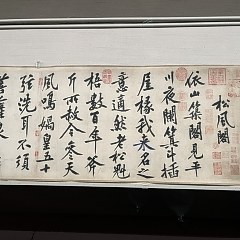 松風閣
依山築閣見平
川夜闌箕斗插
屋椽我來名之
意適然老松魁
梧數百年斧
斤所赦今參天
風鳴媧皇五十
弦洗耳不須
菩薩